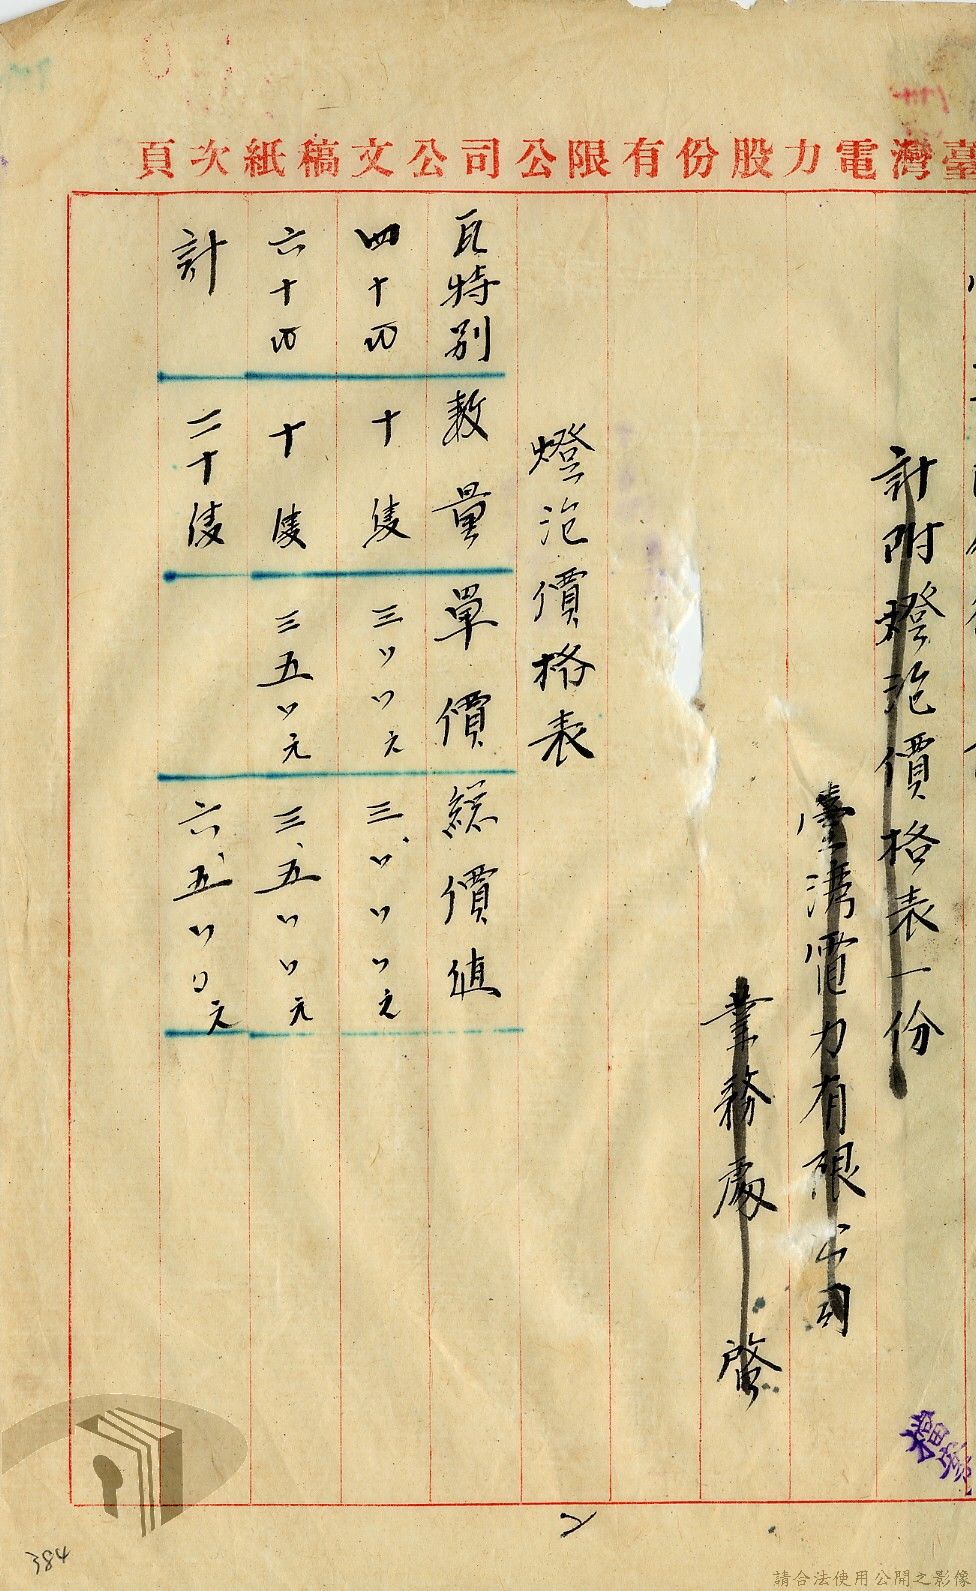 臺灣電力股份有限公司公文稿紙次頁
計附燈泡價格表一份
臺灣電力有限公司
業務處 啓
燈泡價格表
瓦特別 數量 單價 總價值
四十w 十隻 三〃〃元 三、〃〃〃元
六十w 十隻 三五〃元 三、五〃〃元
計 二十隻 六、五〃〃元
2
384
請合法使用公開之影像